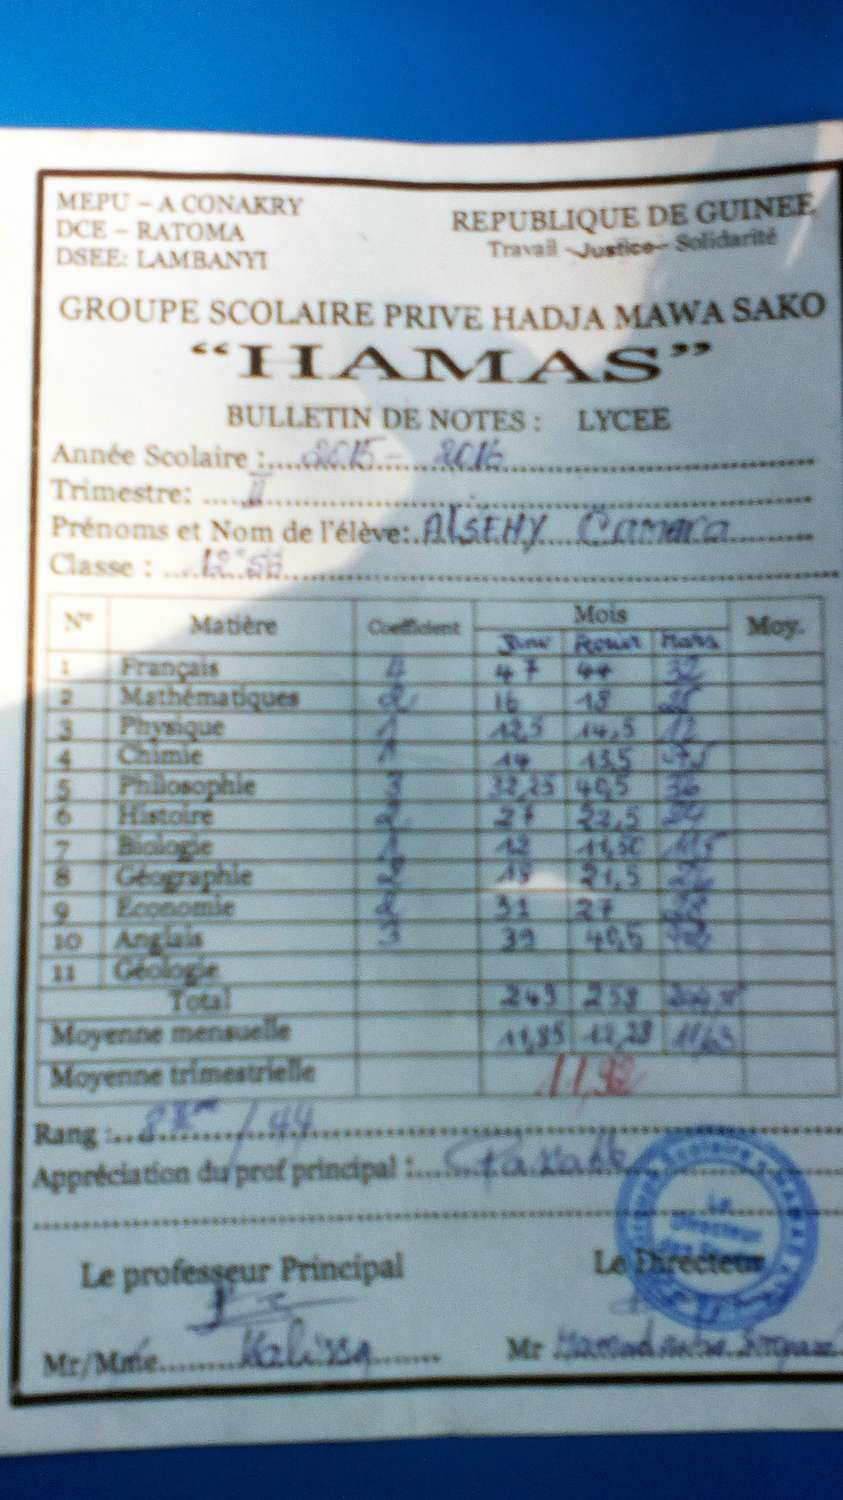 MEPU – A CONAKRY
REPUBLIQUE DE GUINEE
DCE – RATOMA
Travail – Justice – Solidarité
DSEE: LAMBANYI
GROUPE SCOLAIRE PRIVE HADJA MAWA SAKO
“HAMAS”
BULLETIN DE NOTES : LYCEE
Année Scolaire : 2015 - 2016
Trimestre: II
Prénoms et Nom de l'élève: AlSENY Camara
Classe :
N° Matière Coefficient Mois Moy.
Mars
1 Français 4 47 44 32
2 Mathématiques 2 16 18
3 Physique 1 12,5 14,5 12
4 Chimie 1 14 13,5
5 Philosophie 3 32,25 40,5 36
6 Histoire 2 27 22,5
7 Biologie 1 12 11,50 11,5
8 Géographie 2 21,5
9 Economie 2 31 27
10 Anglais 3 39 40,5
11 Géologie
Total 249 258
Moyenne mensuelle 11,85 12,28 11,63
Moyenne trimestrielle 11,92
Rang : 8 / 44
Appréciation du prof principal : Passable
Le professeur Principal
Le Directeur
Le Directeur
Mr/Mme
Mr